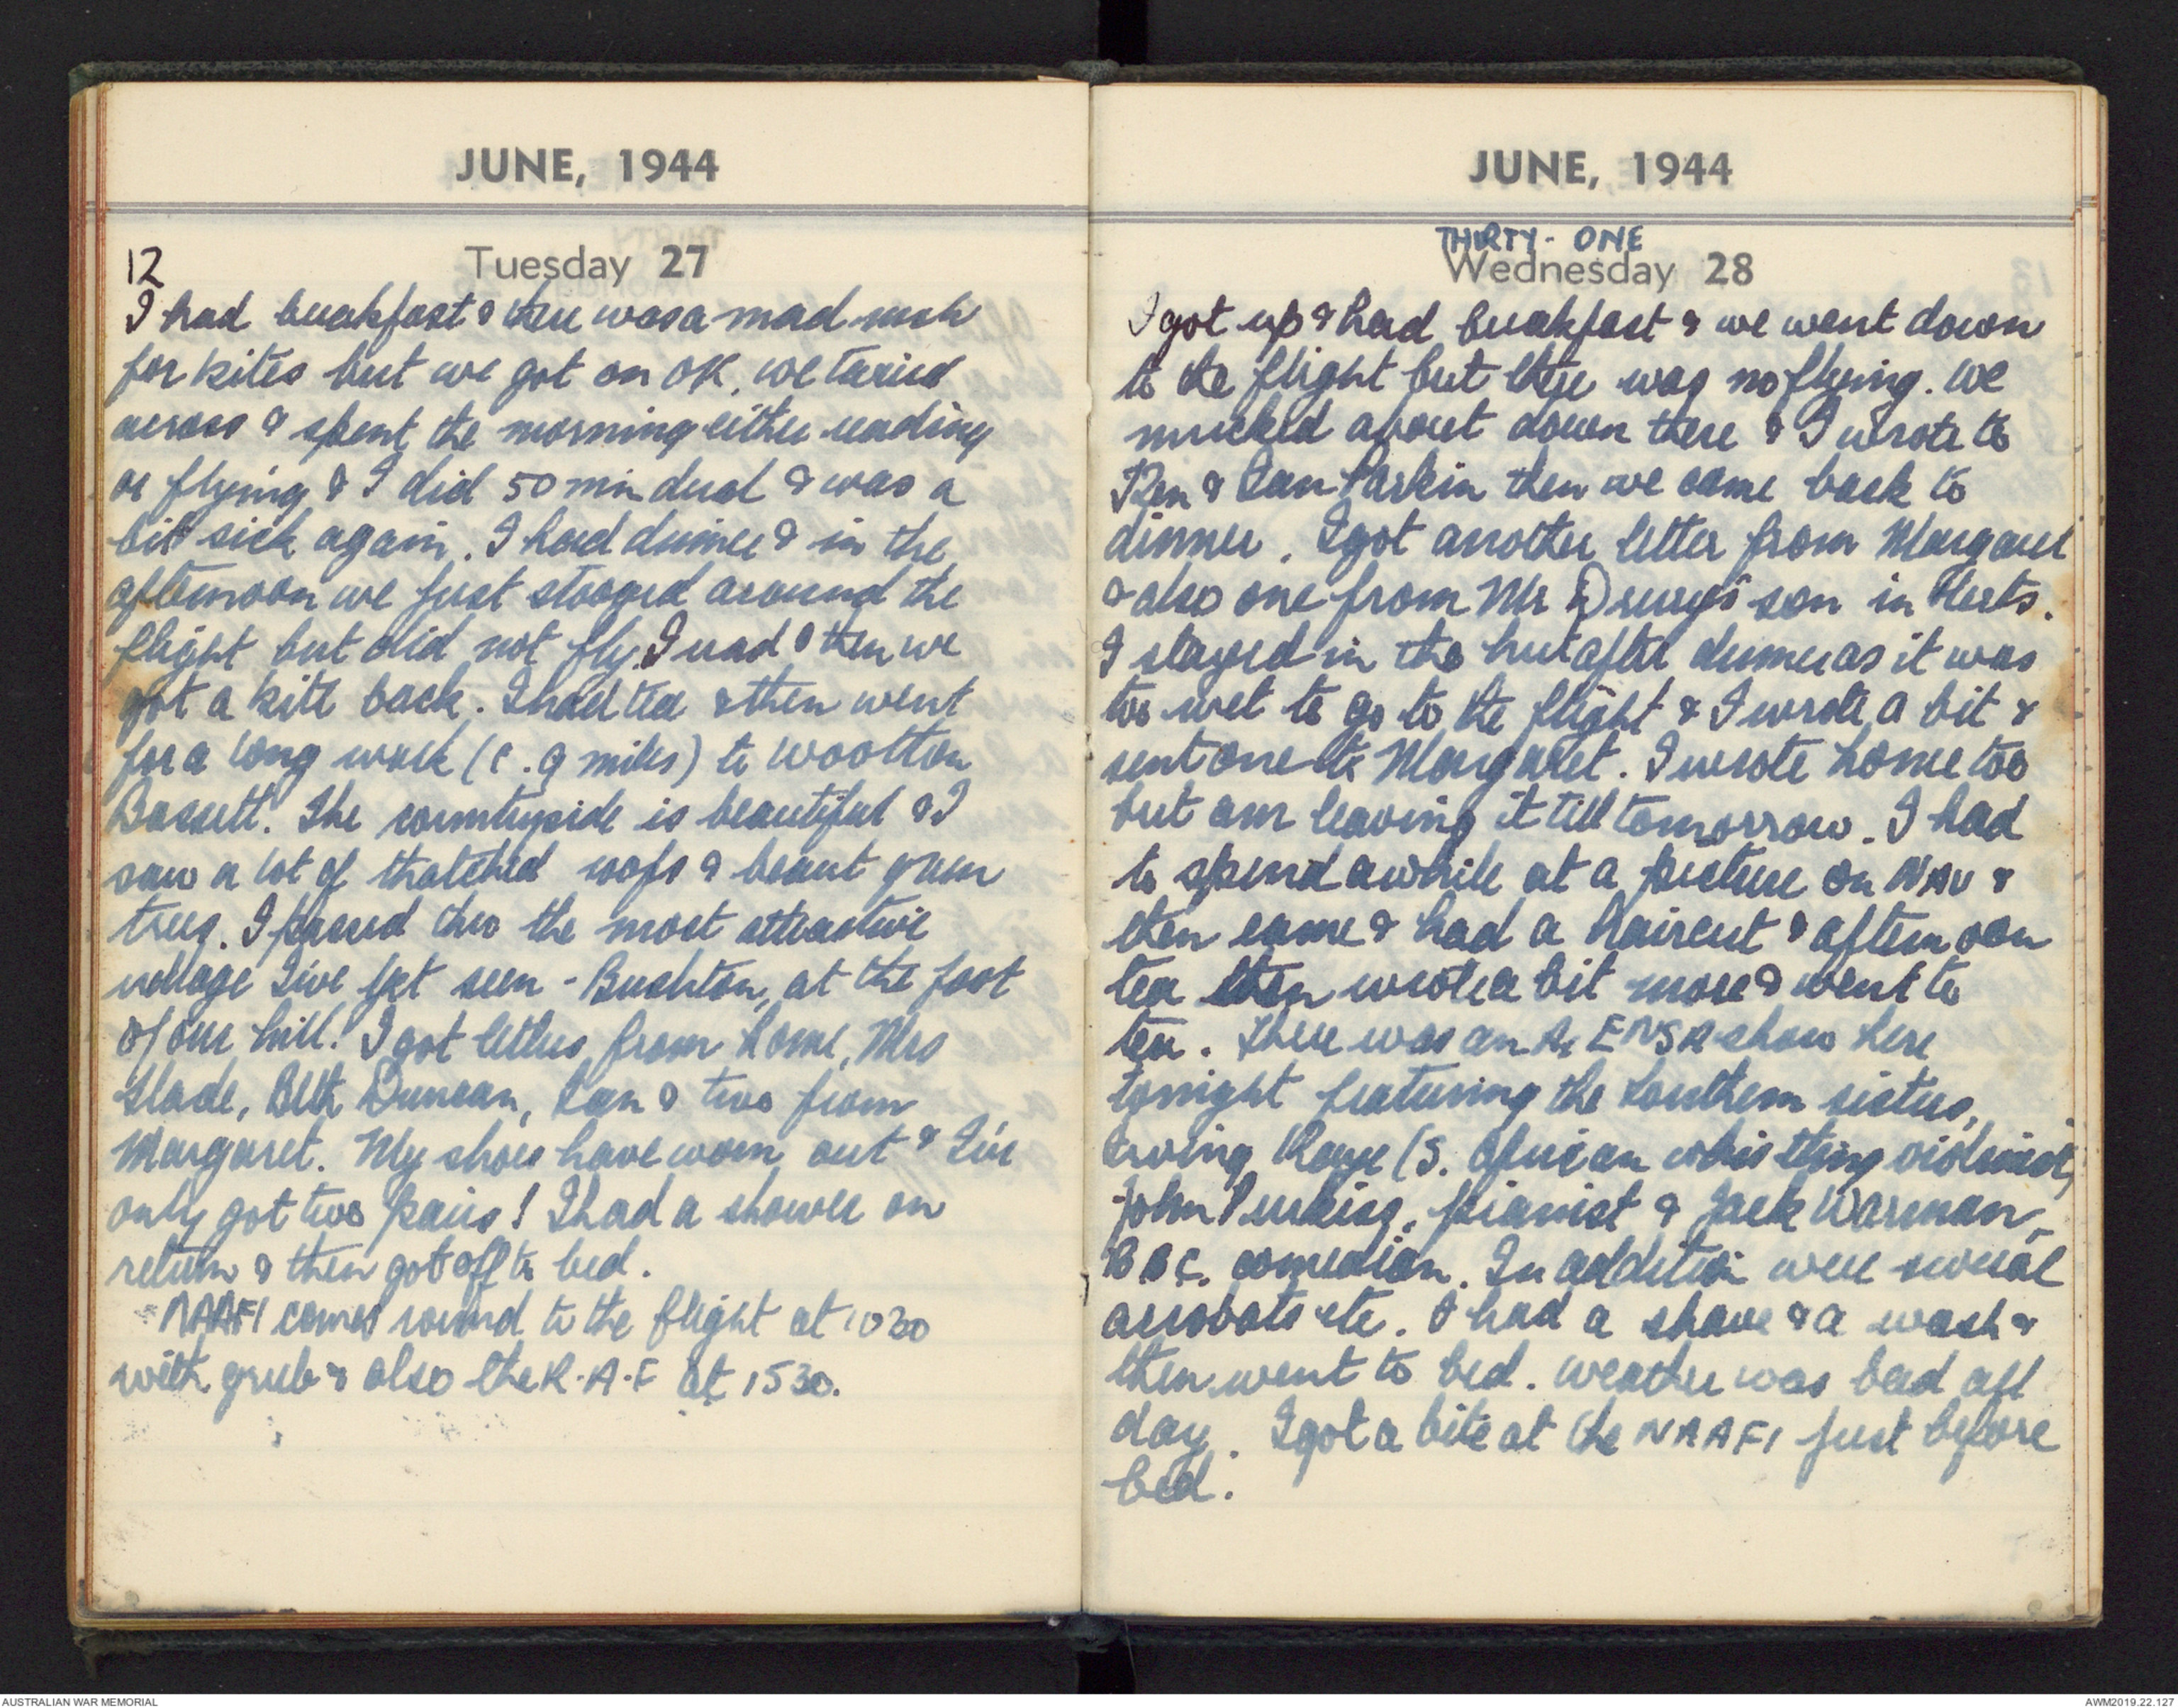 JUNE, 1944
12
Tuesday 27
I had breakfast & there was a mad rush
for kites but we got on OK. we taxied
across & spent the morning either reading
or flying & I did 50 min dual & was a
bit sick again. I had dinner & in the
afternoon we just stooged around the
flight but did not fly. I read & then we
got a kite back. I had tea & then went
for a long walk (c. 9 miles) to Wootton
Bassett. The countryside is beautiful & I
saw a lot of thatched roofs & beaut green
trees. I passed thro the most attractive
village I've yet seen - Bushton, at the foot
of our hill! I got letters from home, Mrs
Slade, Beth Duncan, Ian & two from
Margaret. My shoes have worn out & I've
only got two pairs! I had a shower on
return & then got off to bed.
NAAFI comes round to the flight at 1030
with grub & also the R.A.F at 1530.
JUNE, 1944
THIRTY-ONE
Wednesday 28
I got up & had breakfast & we went down
to the flight but there was no flying. We
mucked about down there & I wrote to
& Ian Parkin then we came back to
dinner. I got another letter from Margaret
& also one from Mr Drury's son in Herts.
I stayed in the hut after dinner as it was
too wet to go to the flight & I wrote a bit &
sent one to Margaret. I wrote home too
but am leaving it till tomorrow. I had
to spend awhile at a picture on NAV &
then came & had a haircut & afternoon
tea then wrote a bit more & went to
tea. There was an ENSA show here
tonight featuring the Southern sisters,
Irving Kaye (S. African whistling violinist,
John Perkiss, pianist & Jack Warman,
BBC. comedian. In addition were several
acrobats etc. I had a shave & a wash &
then went to bed. Weather was bad all
day. I got a bite at the NAAFI just before
bed.
AUSTRALIAN WAR MEMORIAL
AWM2019.22.127